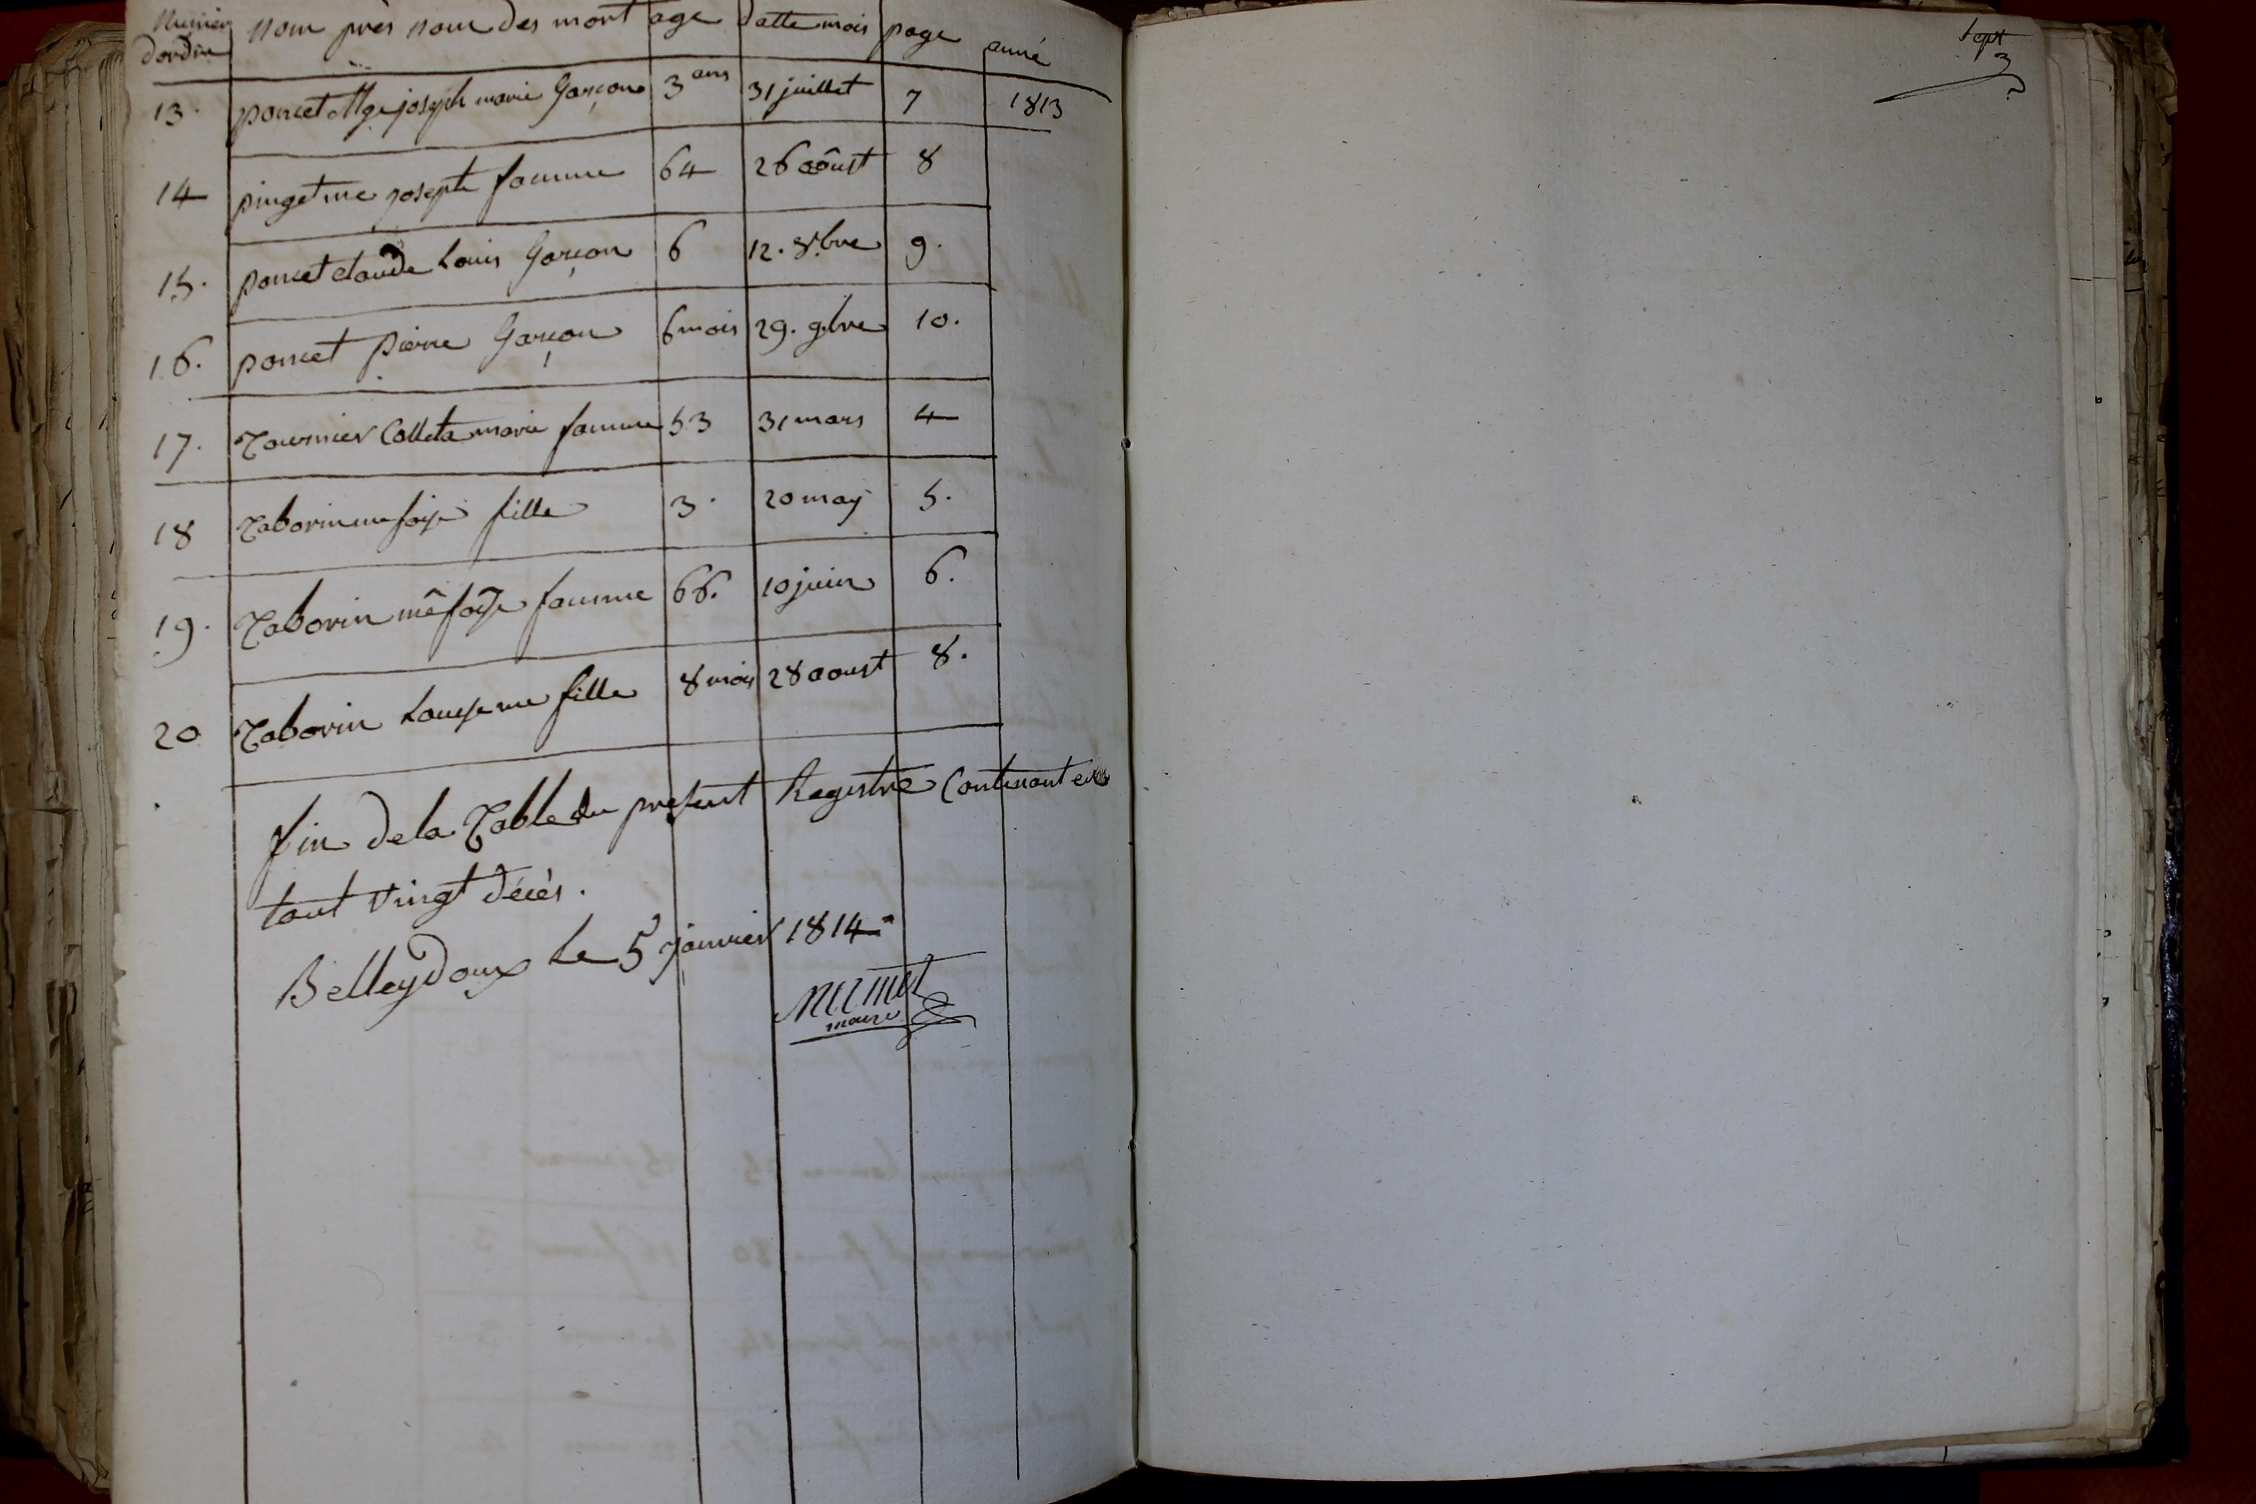 Numéro nom près nom des mort age datte mois page anné
dordre
13. poncet joseph marie garçon 3 ans 31 juillet 7 1813
14 pinget me joseph famme 64 26 aôust 8
15. poncet claude Louis garçon 6 12. 8bre 9.
16. poncet pierre garçon 6 mois 29. 9bre 10.
17. Tournier Colleta marie famme 53 31 mars 4
18 Taborin fille 3. 20 may 5.
19. Taborin famme 66. 10 juin 6.
20 Taborin Louise me fille 8 mois 28 aoust 8.
fin de la Table du present Registre Contenant en
tout vingt décés.
Belleydoux le 5 janvier 1814
maire
sept